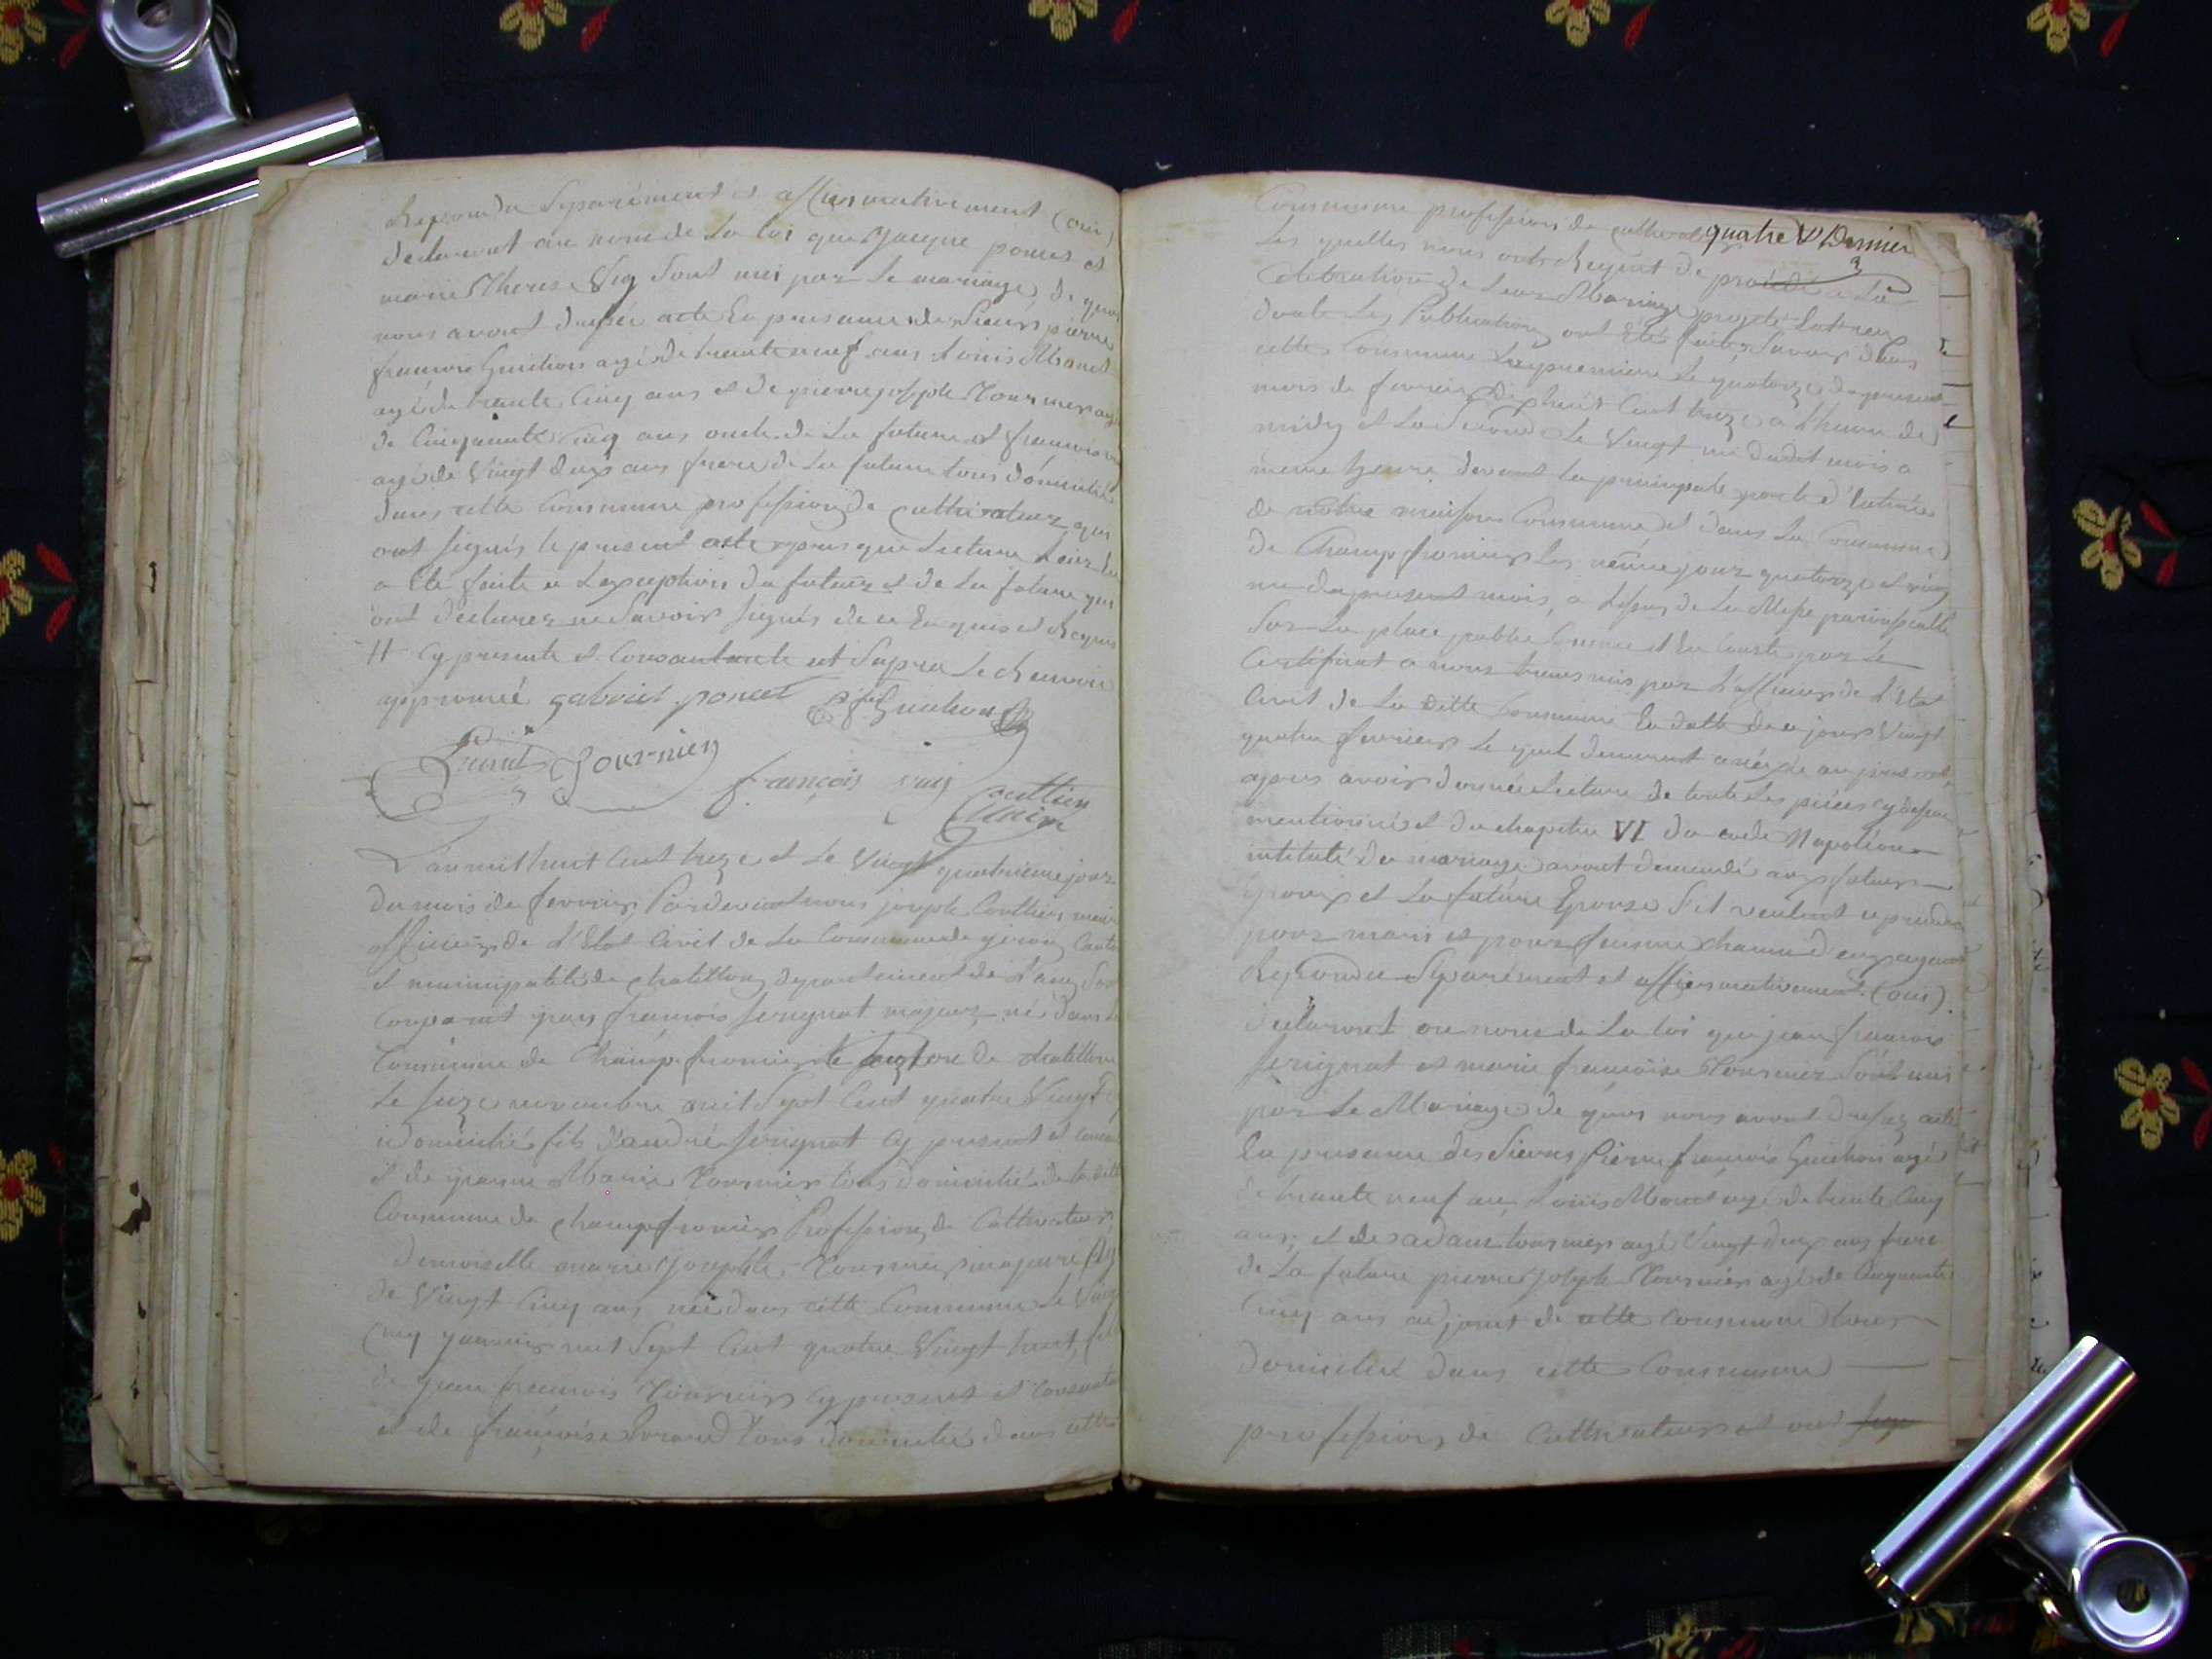 Repondu Separément et affirmativement (oui)
declaront au nom de La loi que Jacque poncet et
marie Therese Vuy Sont uni par Le mariage, de quoi
nous avont dressée acte En presence des Sieurs pierre
francois Guichon agé de trente neuf ans Louis Monet
agé de trente Cinq ans et de pierre joseph Tournier agé
de Cinquante Cinq ans oncle de La future et francois
agé de Vingt deux ans frere de La future tous domicilié
dans cette Commune profession de Cultivateur qui
ont signés le present acte apres que Lecture Leur
a Eté faite a L'exception du futur et de La future qui
ont declarer ne Savoir signés de ce Enquis et Requis
H Cy presente et Consantante ut Supra Le Renvoie
approuvé gabriel poncet p. f. Guichon
Tournier
françois vuy Couttier
Maire
L'an mil huit Cent treze et Le Vingt quatrieme jour
du mois de fevrier Pardevant nous joseph Couttier maire
officier de L'Etat Civil de La Commune de giron, Canton
et municipalité de chatillon, departement de L'ain, Sont
Comparut jean francois Serignat majeur né dans la
Commune de Champfromier de chatillon
Le Suze novembre mil Sept Cent quatre Vingt
domicilié fils d'andré Serignat Cy present et
et de jeanne Marie Tournier tous domicilié de la ditte
Commune de champfromier Profession de Cultivateur
demoiselle marie josephte Tournier majeure
de Vingt Cinq ans née dans cette Commune Le Vingt
Cinq janvier mil Sept Cent quatre Vingt huit, fille
de jean francois Tournier Cy present et Consantant
et de françoise tous domicilié dans cette
Commune profession de quatre Vt Dernier
Les quelles nous ont Requit de procédé a La
Celebration de Leur Mariage projeté Entreux
dont Les Publications ont Eté faites Savoir dans
cette Commune La premiere Le quatorze du present
mois de fevrier dixhuit Cent treze a L'heure de
midy et La Second Le Vingt un dudit mois a
meme heure devant La principale porte d'Entrée
de notre maison Commune et dans La Commune
de Champfromier Les même jour quatorze et vingt
un du present mois, a L'issue de La Messe paroissiale
Sur La place publique Comme il En Conste par Le
Certificat a nous transmis par L'officier de L'Etat
Civil de La ditte Commune En datte de ce jour Vingt
quatre fevrier Le quel demeurent anéxée au present,
apres avoir donnée Lecture de toute Les pieces cy dessus
mentionnés et du chapitre VI du code Napoléon
intitulé du mariage avont demandé aux futurs
Epoux et La future Epouse S'il veulent se prendre
pour mari et pour femme chacun d'eux ayant
Repondu Separément et affirmativement (oui).
declaront au nom de La loi que jean francois
Serignat et marie françoise Tournier Sont unis
par Le Mariage de quoi nous avont dressez acte
En presence des Sieurs Pierre françois Guichon agé
de trante neuf ans, Louis Monet agé de trente Cinq
ans, et de adam tournier agé Vingt deux ans frere
de La future pierre joseph Tournier agé de Cinquante
Cinq ans adjoint de cette Commune tous
domicilié dans cette Commune
profession de Cultivateurs et ont